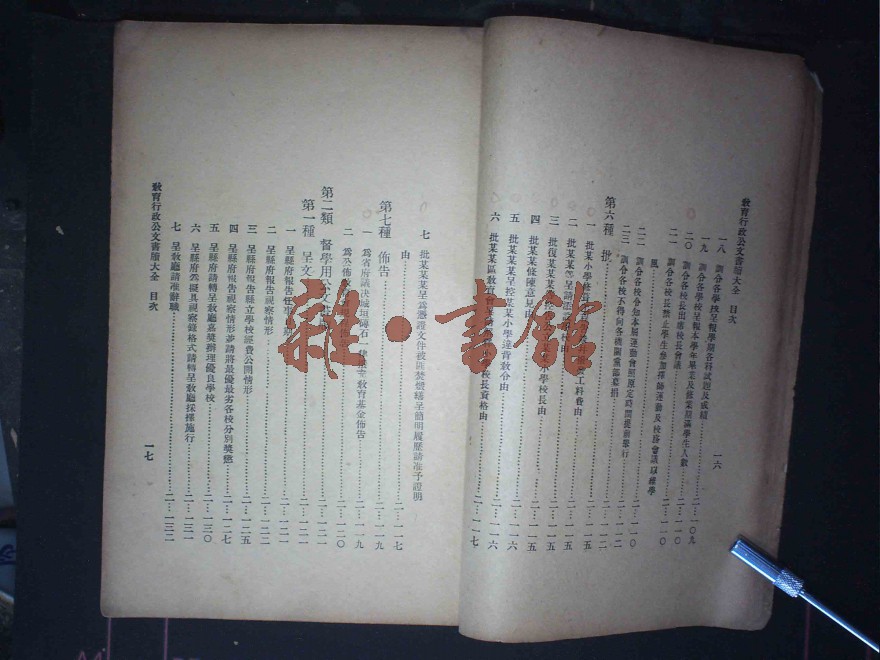 教育行政公文書牘大全 目次
一六
一八 訓令各學校呈報學期各科試題及成績
一九 訓令各學校呈報本學年畢業及修業期滿學生人數……二…一〇九
二〇 訓令各校長出席校長會議……二…一一〇
二一 訓令各校長禁止學生參加擇師運動及校務會議以維學
風……二…一一〇
二二 訓令各校令知本屆運動會照原定時間提前舉行……二…一一〇
二三 訓令各校不得向各機關黨部募捐……二…一一二
第六種 批……二…一一二
一 批某小學 工科費由……二…一一五
二 批某某等呈請 由……二…一一五
三 批復某某某 小學校長由……二…一一五
四 批某某條陳意見由……二…一一五
五 批某某某呈控某某小學違背教令由……二…一一六
六 批某某區教育會呈 校長資格由……二…一一六
二…一一七
七 批某某某呈爲憑證文件被匪焚燬繕呈簡明履歷請准予證明
由……二…一一七
第七種 佈告……二…一一九
一 爲省府議決城垣磚石一律 教育基金佈告……二…一一九
二 爲公佈……二…一二〇
第二類 督學用公文……二…一二一
第一種 呈文……二…一二一
一 呈縣府報告任事日期……二…一二一
二 呈縣府報告視察情形……二…一二一
三 呈縣府報告縣立學校經費公開情形……二…一二二
四 呈縣府報告視察情形並請將最優最劣各校分別獎懲……二…一二七
五 呈縣府請轉呈教廳嘉獎辦理優良學校……二…一三〇
六 呈縣府爲擬具視察錄格式請轉呈教廳採擇施行……二…一三一
七 呈教廳請准辭職……二…一三二
教育行政公文書牘大全 目次
一七
雜·書館